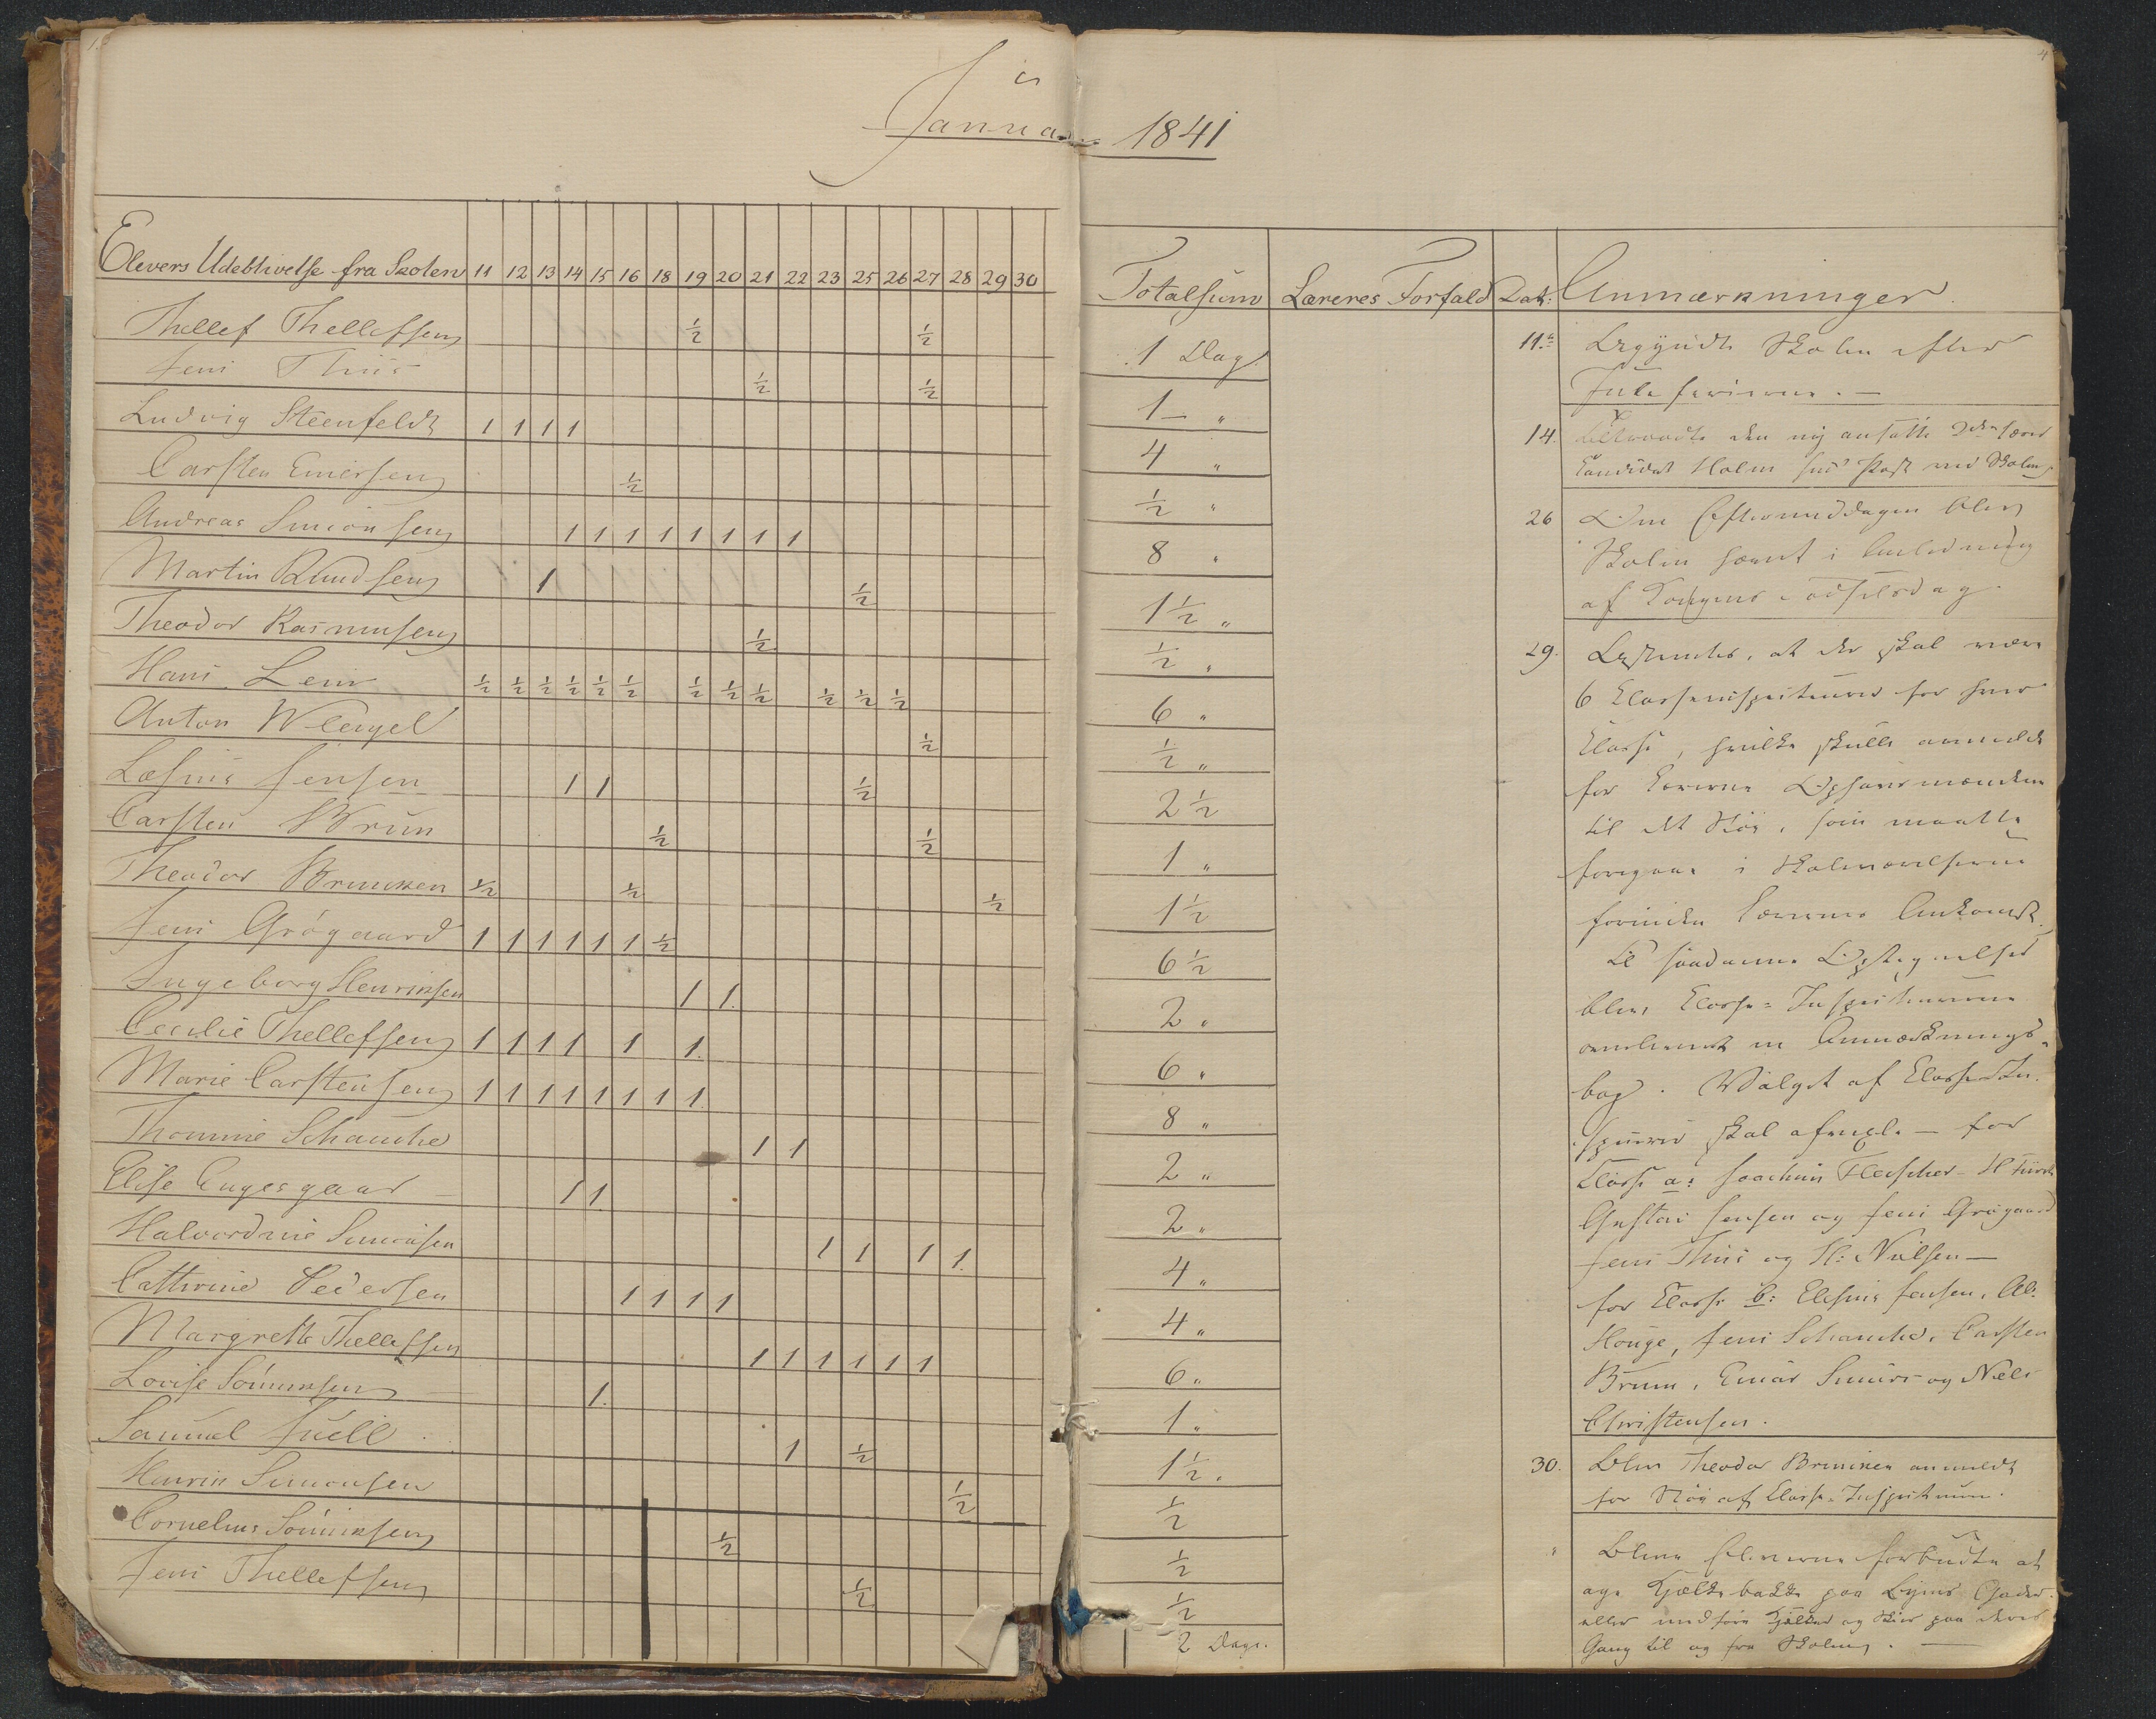 Januar 1841
Elevers Udeblivelse fra Skolen 11 12 13 14 15 16 18 19 20 21 22 23 25 26 27 28 29 30 Totalsum Læreres Forfald Dat: Anmærkninger.
Thellef Thellefsen ½ ½ 1 Dag
Jens Thiis ½ ½ 1 "
Ludvig Steenfeldt 1 1 1 1 4 "
Carsten Einersen ½ ½ "
Andreas Simonsen 1 1 1 1 1 1 1 1 8 "
Martin Knudsen 1 ½ 1½ "
Theodor Rasmusen ½ ½ "
Hans Leir ½ ½ ½ ½ ½ ½ ½ ½ ½ ½ ½ ½ 6 "
Anton Wleugel ½ ½ "
Jensen 1 1 ½ 2½
Carsten Brun ½ ½ 1 "
Theodor Brincken ½ ½ ½ 1½
Jens Grögaard 1 1 1 1 1 1 ½ 6½
Ingeborg Henriksen 1 1. 2 "
Cecilie Thellefsen 1 1 1 1 1 1. 6 "
Marie Carstensen 1 1 1 1 1 1 1 1. 8 "
Thomine Schanche 1 1 2 "
Elise Engesgaar 1 1. 2 "
Halvordine Simonsen 1 1 1 1. 4 "
Cathrine Pedersen 1 1 1 1 4 "
Margrette Thellefsen 1 1 1 1 1 1 6 "
Lovise Sönniksen 1. 1 "
Samuel Juell 1 ½ 1½ "
Henrik Simonsen ½ ½
Cornelius Sönniksen ½ ½
Jens Thellefsen ½ ½
2 Dage.
11te Begyndte Skolen efter
Juleferierne. —
14. tiltraadte den ny ansatte 2den Lærer
Candidat Holm sin Post ved Skolen
26 Om Eftermiddagen blev
Skolen hævet i Anledning
af Kongens Fødselsdag.
29. Bestemtes, at der skal være
6 Classeinspecteurer for hver
Classe, hvilke skulle anmelde
for Lærerne Ophavsmændene
til det Støi, som maatte
foregaae i Skoleværelserne
forinden Lærernes Ankomst.
Til saadanne Optegnelser
blev Classe-Inspecteurerne
overleveret en Anmærknings-
bog. Valget af Classe-In-
skal afvexle — for
Classe a: Joachim Fleischer -
Gustav Jensen og Jens Grögaard
Jens Thiis og H: Nielsen —
for Classe b: Jensen, Al:
Houge, Jens Schanche, Carsten
Brun, Einar og Niels
Christensen.
30. Blev Theodor Brincken anmeldt
for Støi af Classe-Inspecteuren.
" Bleve Eleverne forbudte at
age Kjælkebakke paa Byens Gader
eller medføre Kjælker og Skier paa deres
Gang til og fra Skolen. —